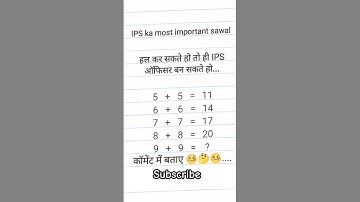 IPS ka most important sawal
हल कर सकते हो तो ही IPS
ऑफिसर बन सकते हो...
5 + 5 = 11
6 + 6 = 14
7 + 7 = 17
8 + 8 = 20
9 + 9 = ?
कॉमेंट में बताए 🤒🤔🤒....
Subscribe